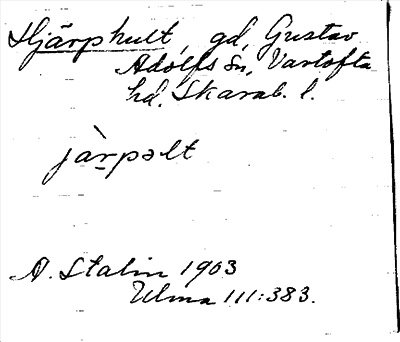 Hjärphult, gd, Gustav
Adolfs sn, Vartofta
hd. Skarab. l.
jàrpəlt
A. Stalin 1903
Ulma 111:383.